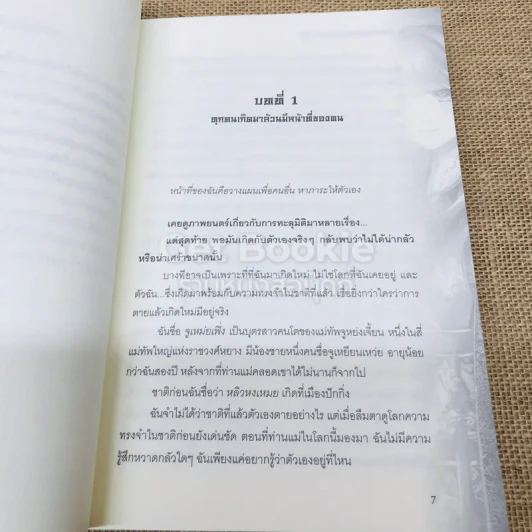 บทที่ 1
ทุกคนเกิดมาล้วนมีหน้าที่ของตน
หน้าที่ของฉันคือวางแผนเพื่อคนอื่น หาภาระให้ตัวเอง
เคยดูภาพยนตร์เกี่ยวกับการทะลุมิติมาหลายเรื่อง...
แต่สุดท้าย พอมันเกิดกับตัวเองจริงๆ กลับพบว่าไม่ได้น่ากลัว
หรือน่าเศร้าขนาดนั้น
บางทีอาจเป็นเพราะที่ที่ฉันมาเกิดใหม่ ไม่ใช่โลกที่ฉันเคยอยู่ และ
ตัวฉัน...ซึ่งเกิดมาพร้อมกับความทรงจำในชาติที่แล้ว เชื่อยิ่งกว่าใครว่าการ
ตายแล้วเกิดใหม่มีอยู่จริง
ฉันชื่อ จูเหม่ยเฟิ่ง เป็นบุตรสาวคนโตของแม่ทัพจูหย่งเจี้ยน หนึ่งในสี่
แม่ทัพใหญ่แห่งราชวงศ์หยาง มีน้องชายหนึ่งคนชื่อจูเหยียนเหว่ย อายุน้อย
กว่าฉันสองปี หลังจากที่ท่านแม่คลอดเขาได้ไม่นานก็จากไป
ชาติก่อนฉันชื่อว่า หลิวหงเหมย เกิดที่เมืองปักกิ่ง
ฉันจำไม่ได้ว่าชาติที่แล้วตัวเองตายอย่างไร แต่เมื่อลืมตาดูโลกความ
ทรงจำในชาติก่อนยังเด่นชัด ตอนที่ท่านแม่ในโลกนี้มองมา ฉันไม่มีความ
รู้สึกหวาดกลัวใดๆ ฉันเพียงแค่อยากรู้ว่าตัวเองอยู่ที่ไหน
7
Get Bookie
ร้านหนังสือบุ๊กกี้